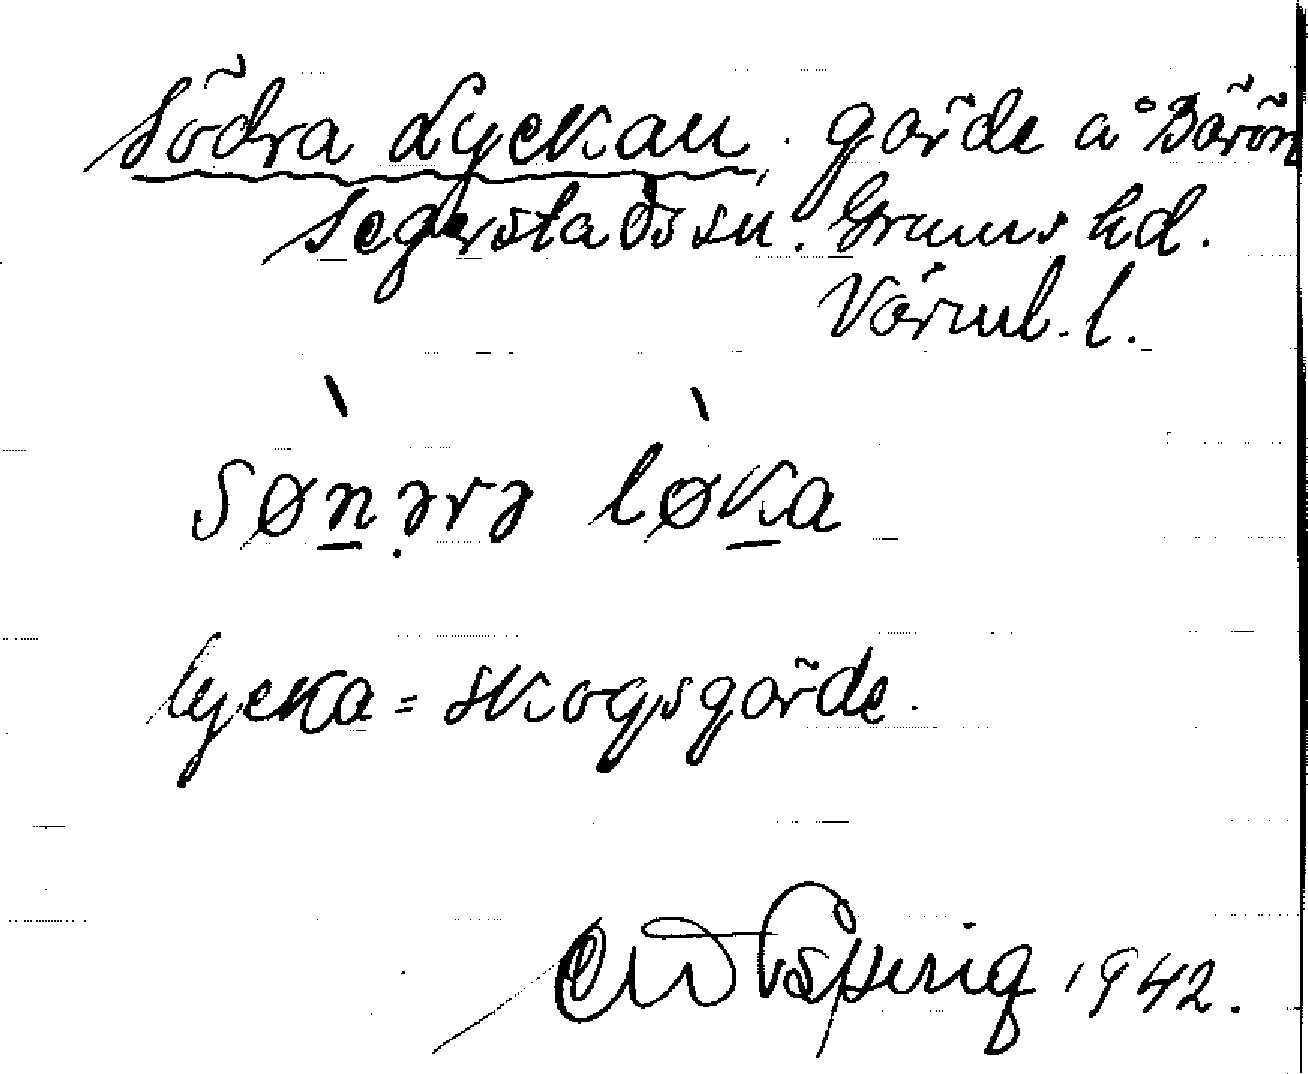 Södra Lyckan, gärde å Bärön
Segerstads sn. Grums hd.
Värml. l.
sønərə løka
lycka = skogsgärde.
1942.